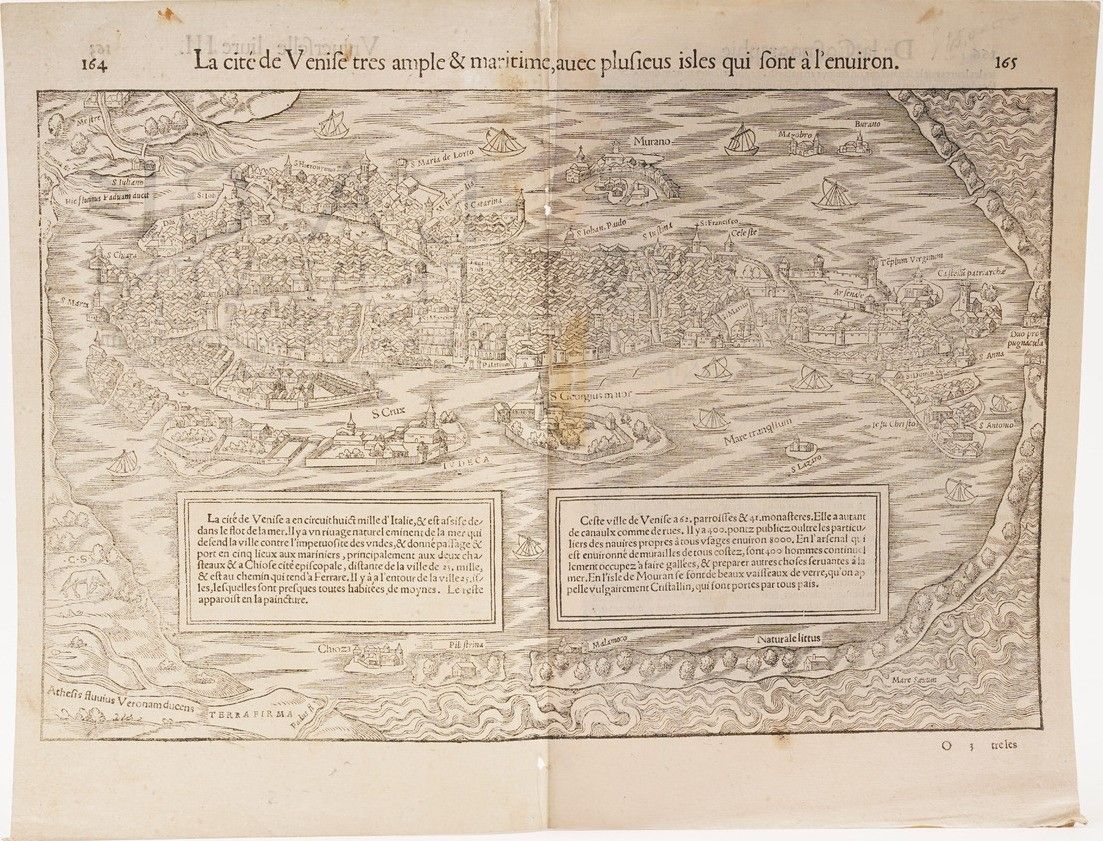 164
La cité de Veniſe tres ample & maritime, auec pluſieus isles qui ſont à l'enuiron.
165
Meſtre
S. Iuliann
Hic fluuius Paduam ducit
S. Hieronimus
S. Maria de Lorto
S. Catarina
Murano
Mazobro
Burano
S. Iohan. Paulo
S. Iuſtina
S. Franciſco
Celeſte
S. Chiara
S. Marta
Arſenale
Tēplum Virginum
Caſtello patriarchæ
Duo pro
pugnacula
S. Marco
Palatium
S. Anna
S. Crux
S. Georgius maior
IUDECA
Mare tranquillum
S. Lazaro
Ieſu Chriſto
S. Antonio
La cité de Veniſe a en circuit huict mille d'Italie, & eſt aſsiſe de-
dans le flot de la mer. Il y a vn riuage naturel eminent de la mer qui
defend la ville contre l'impetuoſité des vndes, & donne paſſage &
port en cinq lieux aux mariniers, principalement aux deux cha-
ſteaux & a Chioſe cité epiſcopale, diſtante de la ville de 25. mille,
& eſt au chemin qui tend à Ferrare. Il y à à l'entour de la ville 25. iſ-
les, leſquelles ſont preſques toutes habitées, de moynes. Le reſte
apparoiſt en la paincture.
Ceſte ville de Veniſe a 62. parroiſſes & 41. monaſteres. Elle a autant
de canaulx comme de rues. Il y a 400. pontz publicz oultre les particu-
liers des nauires propres à tous vſages enuiron 8000. En l'arſenal qui
eſt enuironné de murailles de tous coſtez, ſont 400 hommes continuel
lement occupez à faire gallées, & preparer autres choſes ſeruantes à la
mer. En l'isle de Mouran ſe font de beaux vaiſſeaux de verre, qu'on ap
pelle vulgairement Criſtallin, qui ſont portés par tous pais.
Chioza
Pileſtrina
Malamoco
Naturale littus
Atheſis fluuius Veronam ducens
TERRA FIRMA
Mare Sæuum
O 3 treſes